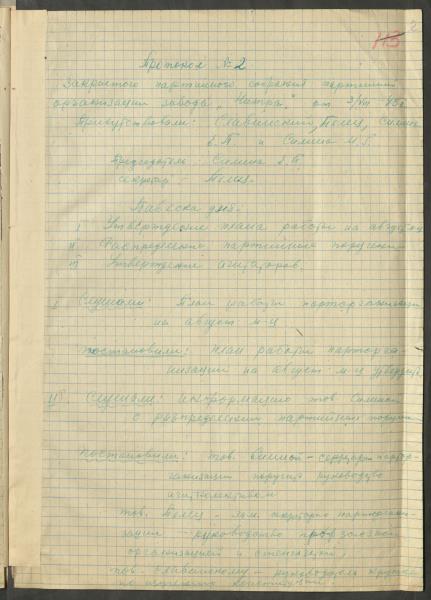 2
113
Протокол №2
Закрытого партийного собрания партийной
организации завода „Нитра" от
Присутствовали: Славинский, Телея, Силина
и Силина
Председатель: Силина
секретарь: Телея.
Повеска дня:
I Утверждение плана работы на август
II Распределение партийных поручений
III Утверждение агитаторов.
I Слушали: План работы парторганизации
на август м-ц
постановили: план работы парторга-
низации на август м-ц утвердить
II Слушали: Информацию тов. Силиной
о распределении партийных поручений
постановили: тов. Силиной – секретарь партор-
ганизации поручить руководство
агитколлективом
тов. Телея
руководство профсоюзной
организацией и
тов. Славинскому – руководитель кружка
по изучению Конституции